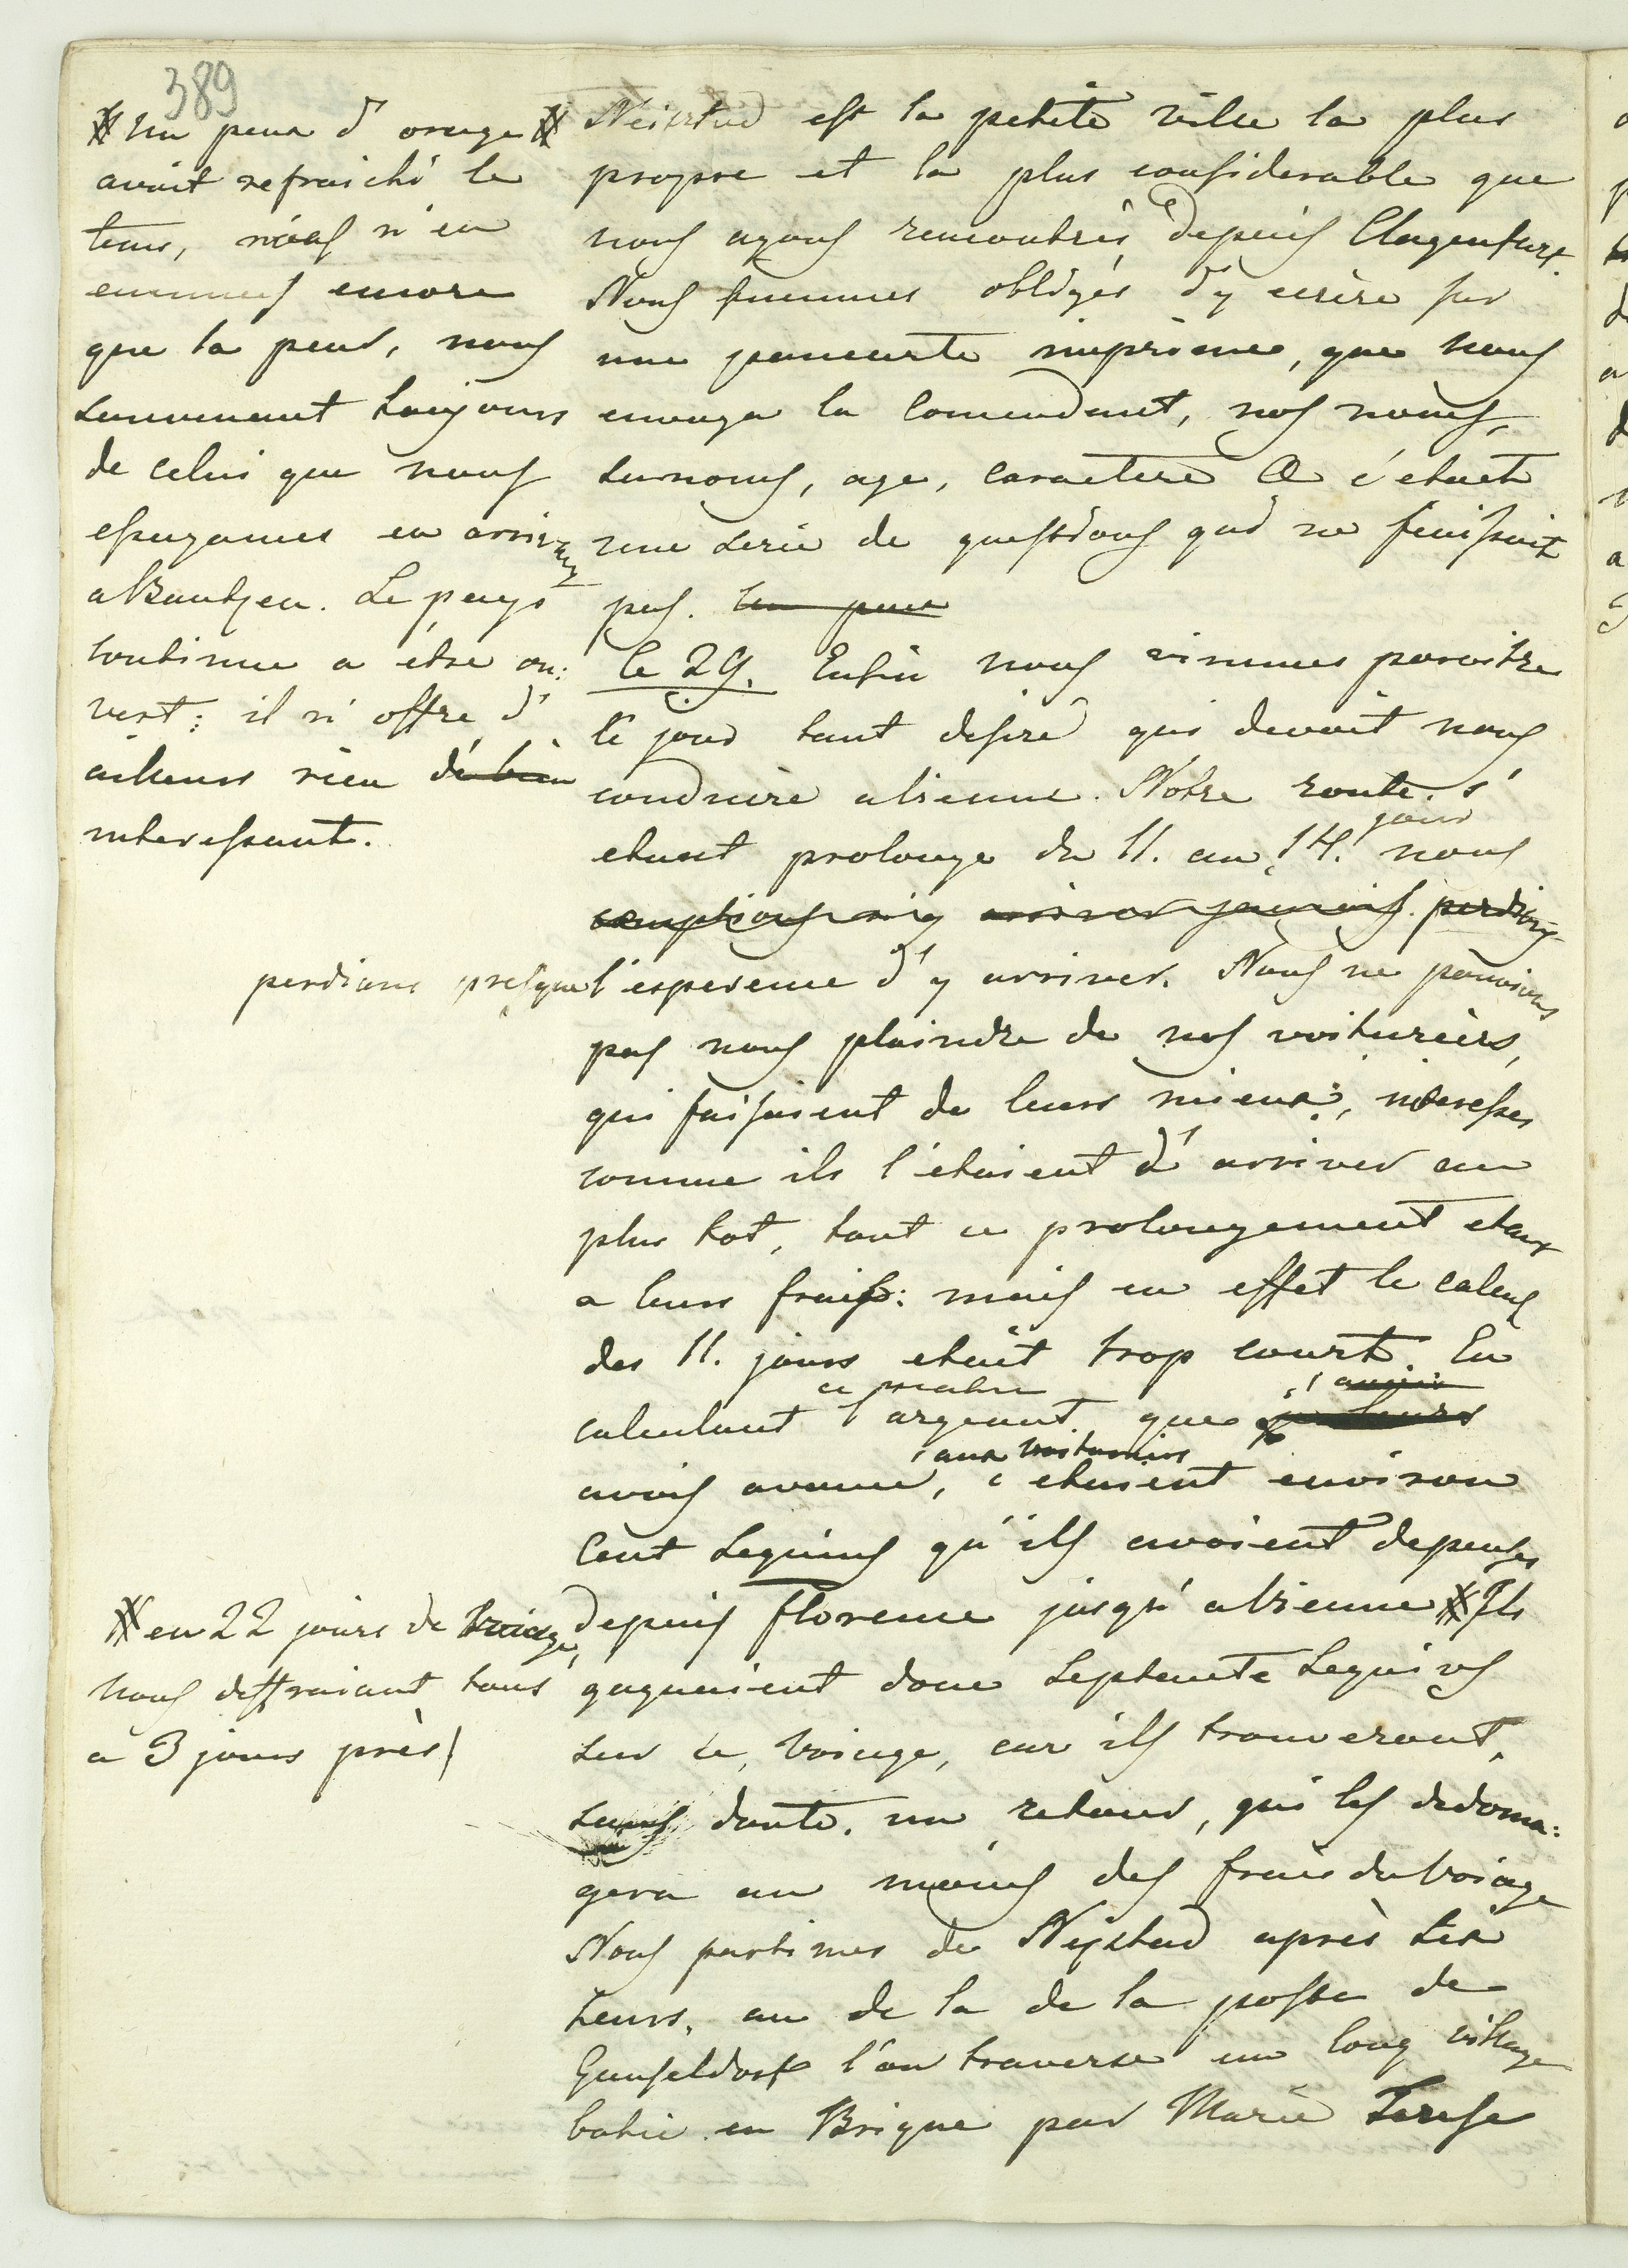 389
※ Un peux d' orage ※
avoit refraichi le
tems, nous n'en
eumes encore
que la peur, nous
sauvenant toujours
de celui que nous
essuyames en arrivant
a Brantzen. Le pays
continue a étre ou:
vert: il n' offre d'
ailleurs rien de bien
interessant.
perdions presque
※ en 22 jours de Voiage,
nous deffraiant tous
a 3 jours près)
Neistad est la petite ville la plus
propre et la plus considerable que
nous ayons rencontrés depuis Clagenfurt.
Nous fumes obligés d'y ecrire sur
une pancarte imprimee, que nous
envoya le Comendant, nos noms,
surnoms, age, caractere & c'etoit
une serie de questions qui ne finissoit
pas. Un peux
le 29. Enfin nous vimmes paroitre
le jour tant desiré qui devoit nous
conduire a Vienne. Notre route s'
etant prolongé du 11. au 14. jour nous
comptions n'y arriver jamais. perdions
l'esperence d'y arriver. Nous ne pouvions
pas nous plaindre de nos voituriers,
qui faisoient de leurs mieux, interessés
comme ils l'etoient d' arriver au
plus tot, tout ce prolongement etant
a leurs frais: mais en effet le calcul
des 11. jours etoit trop court. En
calculant l'argeant que j'
avois avancé, aux voituriers c'etoient environ
Cent Sequins qu'ils avoient depensés
depuis Florence jusqu' a Vienne ※ Ils
gagnoient donc Septente Sequins
sur ce Voiage, car ils trouveront,
sans doute, un retour, qui les dedoma:
gera au moins des frais du Voiage
Nous partimes de Nejstad après six
heurs, au de la de la poste de
Gunseldorf l'on traverse un long village
batie en Brique par Marie Terese